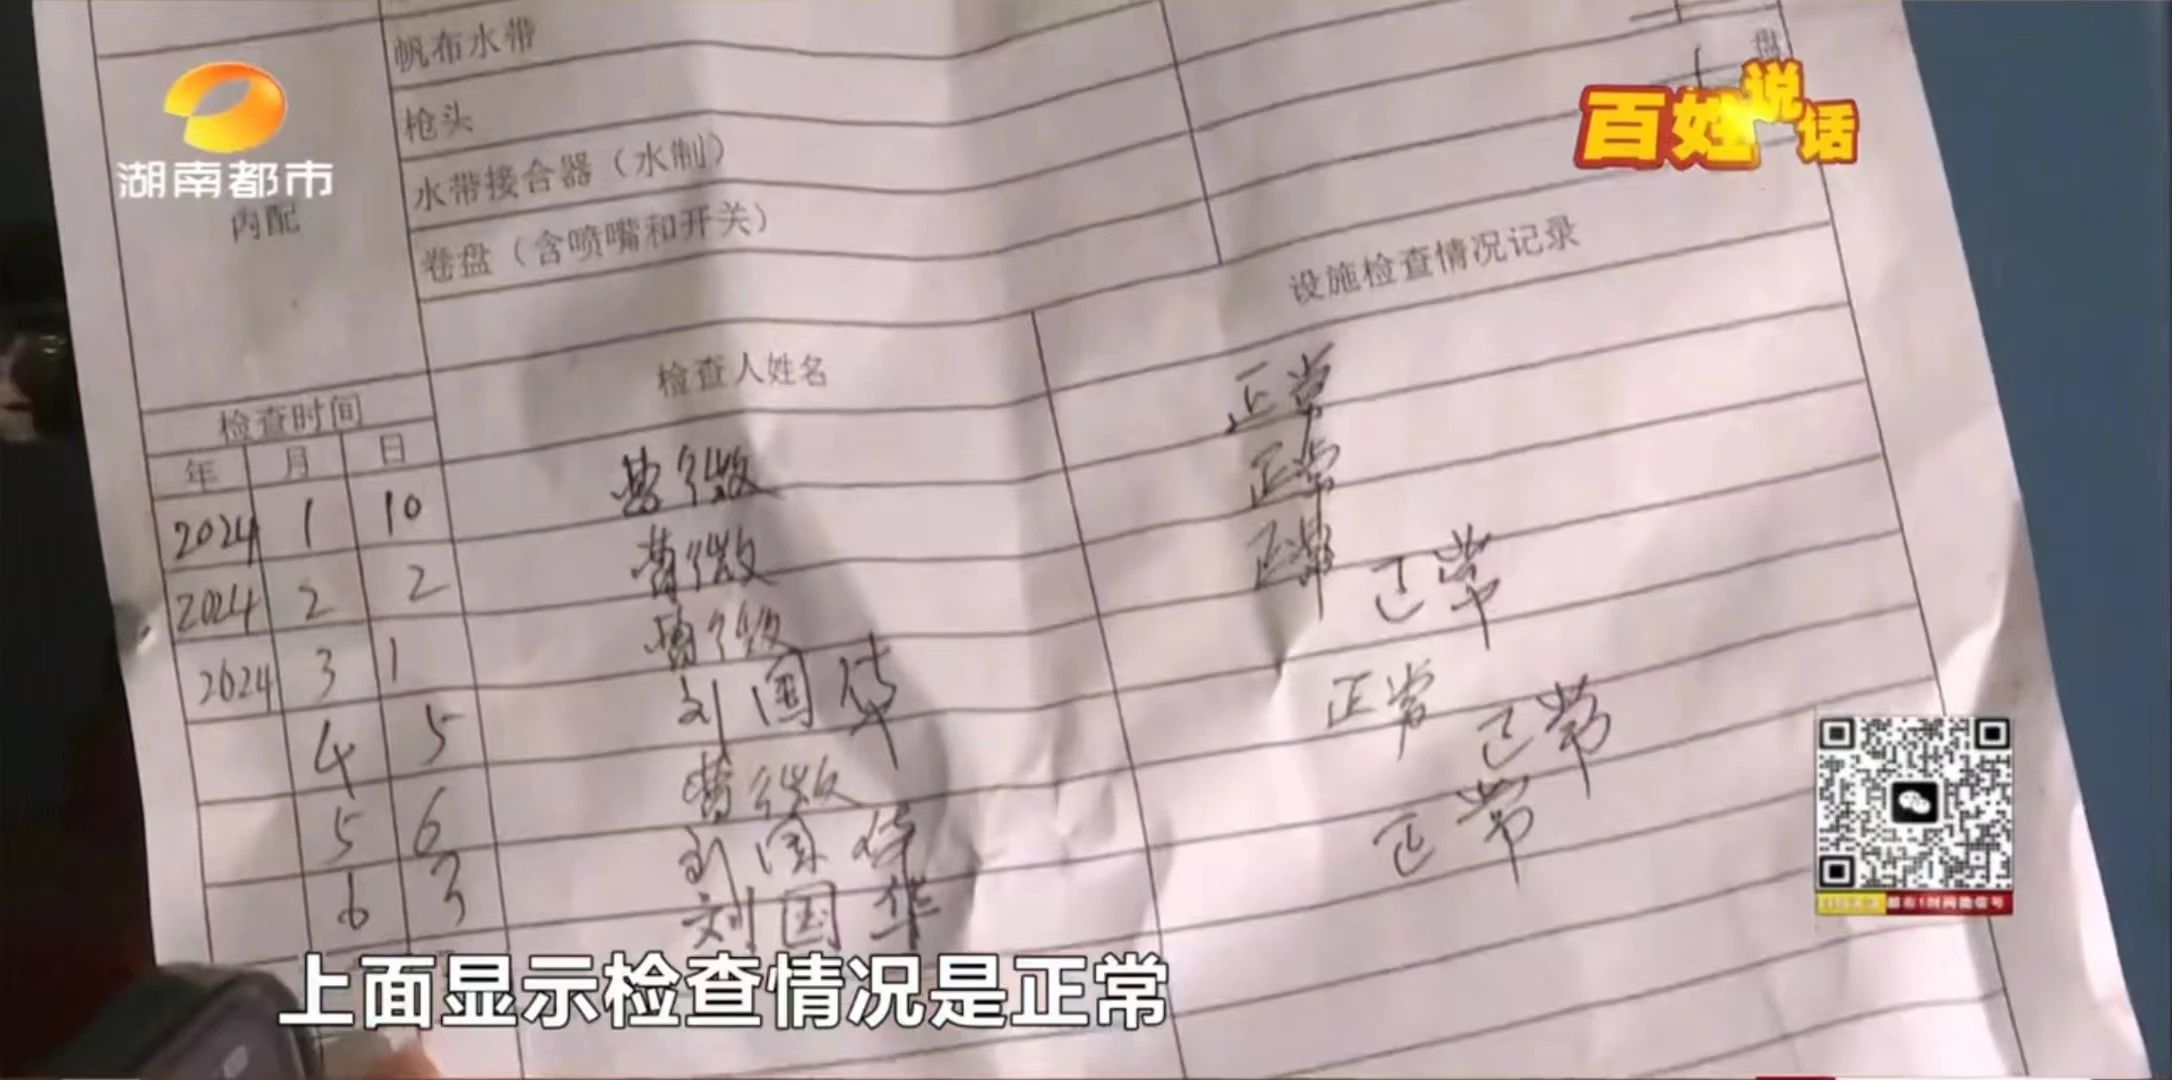 帆布水带
盘
枪头
1
湖南都市
百姓说话
水带接合器（水制）
内配
卷盘（含喷嘴和开关）
设施检查情况记录
检查人姓名
检查时间
年 月 日
2024 1 10 曹微 正常
2024 2 2 曹微 正常
2024 3 1 曹微 正常
4 5 刘国华 正常
5 6 曹微 正常
6 3 刘国华 正常
刘国华 正常
上面显示检查情况是正常